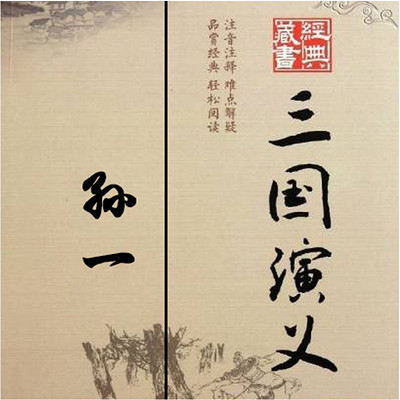 經典
藏書
三国演义
注音注释 难点解疑
品赏经典 轻松阅读
孙一